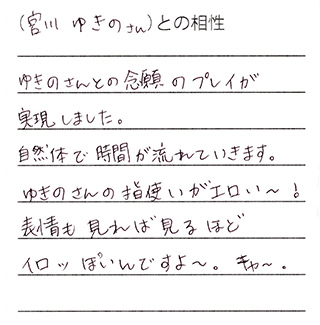 (宮川 ゆきのさん)との相性
ゆきのさんとの念願のプレイが
実現しました。
自然体で時間が流れていきます。
ゆきのさんの指使いがエロい〜!
表情も見れば見るほど
イロッぽいんですよ〜。キャ〜。